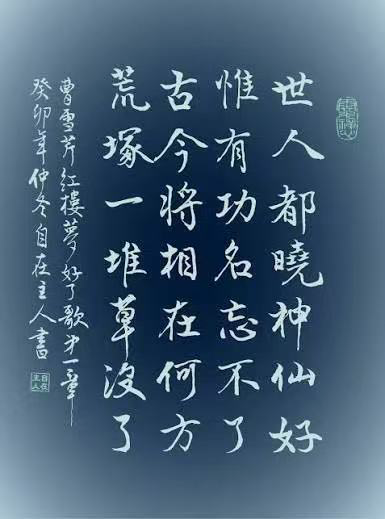 世人都曉神仙好
惟有功名忘不了
古今將相在何方
荒塚一堆草沒了
曹雪芹紅樓夢好了歌第一章
癸卯年仲冬自在主人書
自在主人